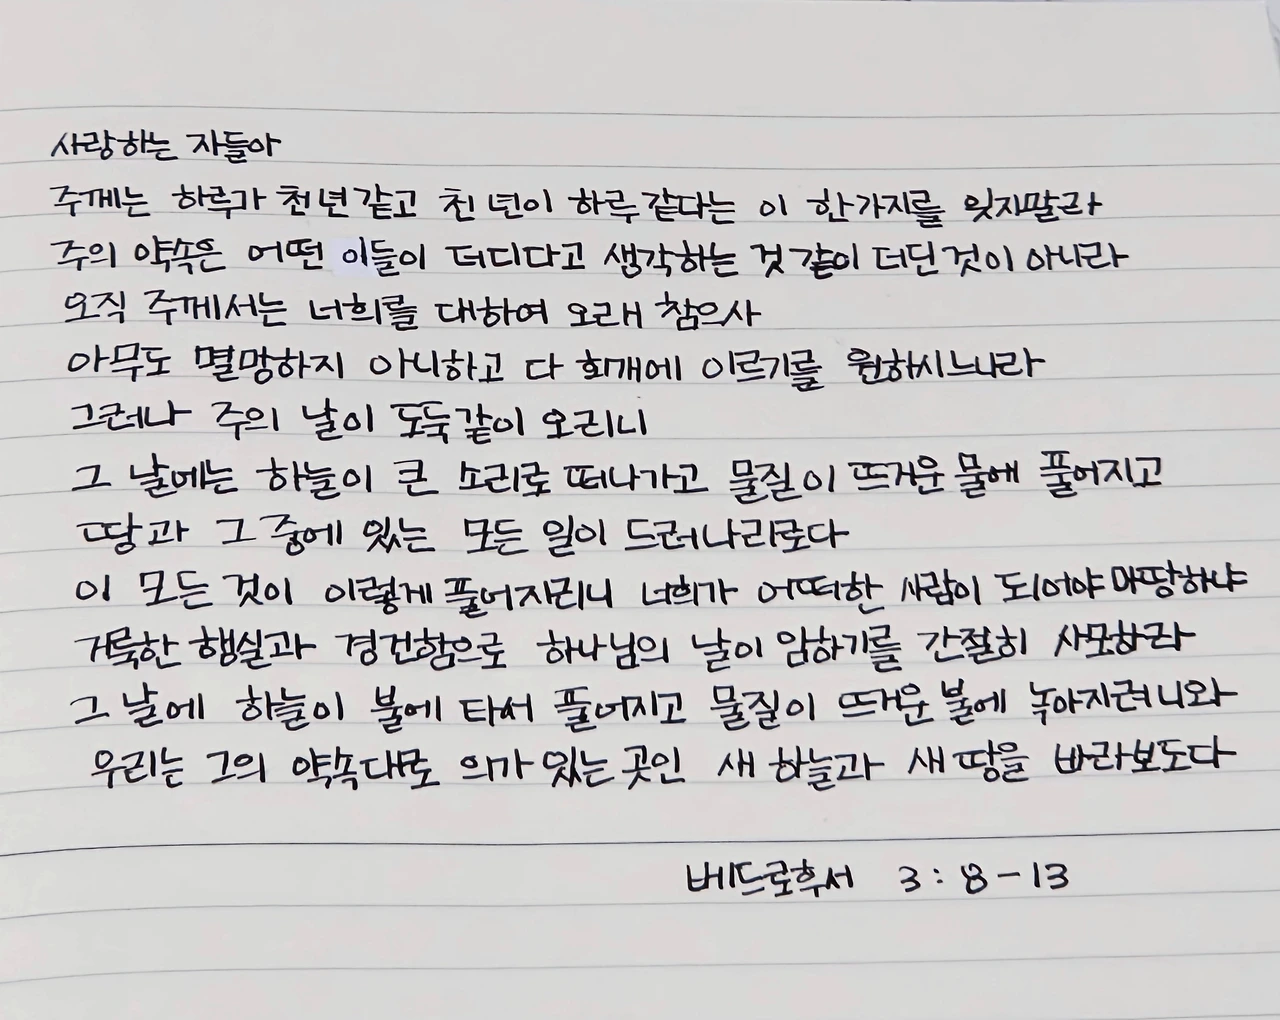 사랑하는 자들아
주께는 하루가 천년같고 천년이 하루같다는 이 한가지를 잊지말라
주의 약속은 어떤 이들이 더디다고 생각하는 것 같이 더딘것이 아니라
오직 주께서는 너희를 대하여 오래 참으사
아무도 멸망하지 아니하고 다 회개에 이르기를 원하시느니라
그러나 주의 날이 도둑같이 오리니
그 날에는 하늘이 큰 소리로 떠나가고 물질이 뜨거운 물에 풀어지고
땅과 그 중에 있는 모든 일이 드러나리로다
이 모든 것이 이렇게 풀어지리니 너희가 어떠한 사람이 되어야 마땅하냐
거룩한 행실과 경건함으로 하나님의 날이 임하기를 간절히 사모하라
그 날에 하늘이 불에 타서 풀어지고 물질이 뜨거운 불에 녹아지려니와
우리는 그의 약속대로 의가 있는 곳인 새 하늘과 새 땅을 바라보도다
베드로후서 3:8-13